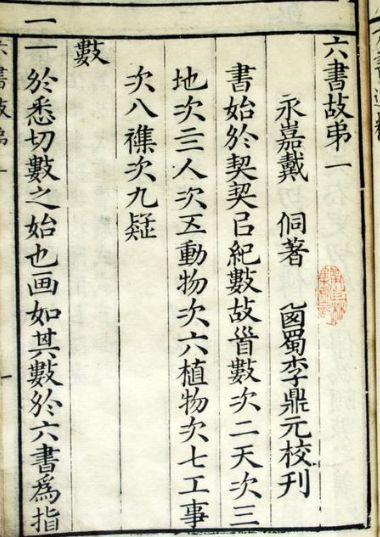 六書故弟一
永嘉戴侗著 卥蜀李鼎元校刊
書始於契契㠯紀數故𩠐數次二天次三
地次亖人次五動物次六植物次七工事
次八襍次九疑
數
一 於悉切數之始也画如其數於六書爲指
六書故弟一